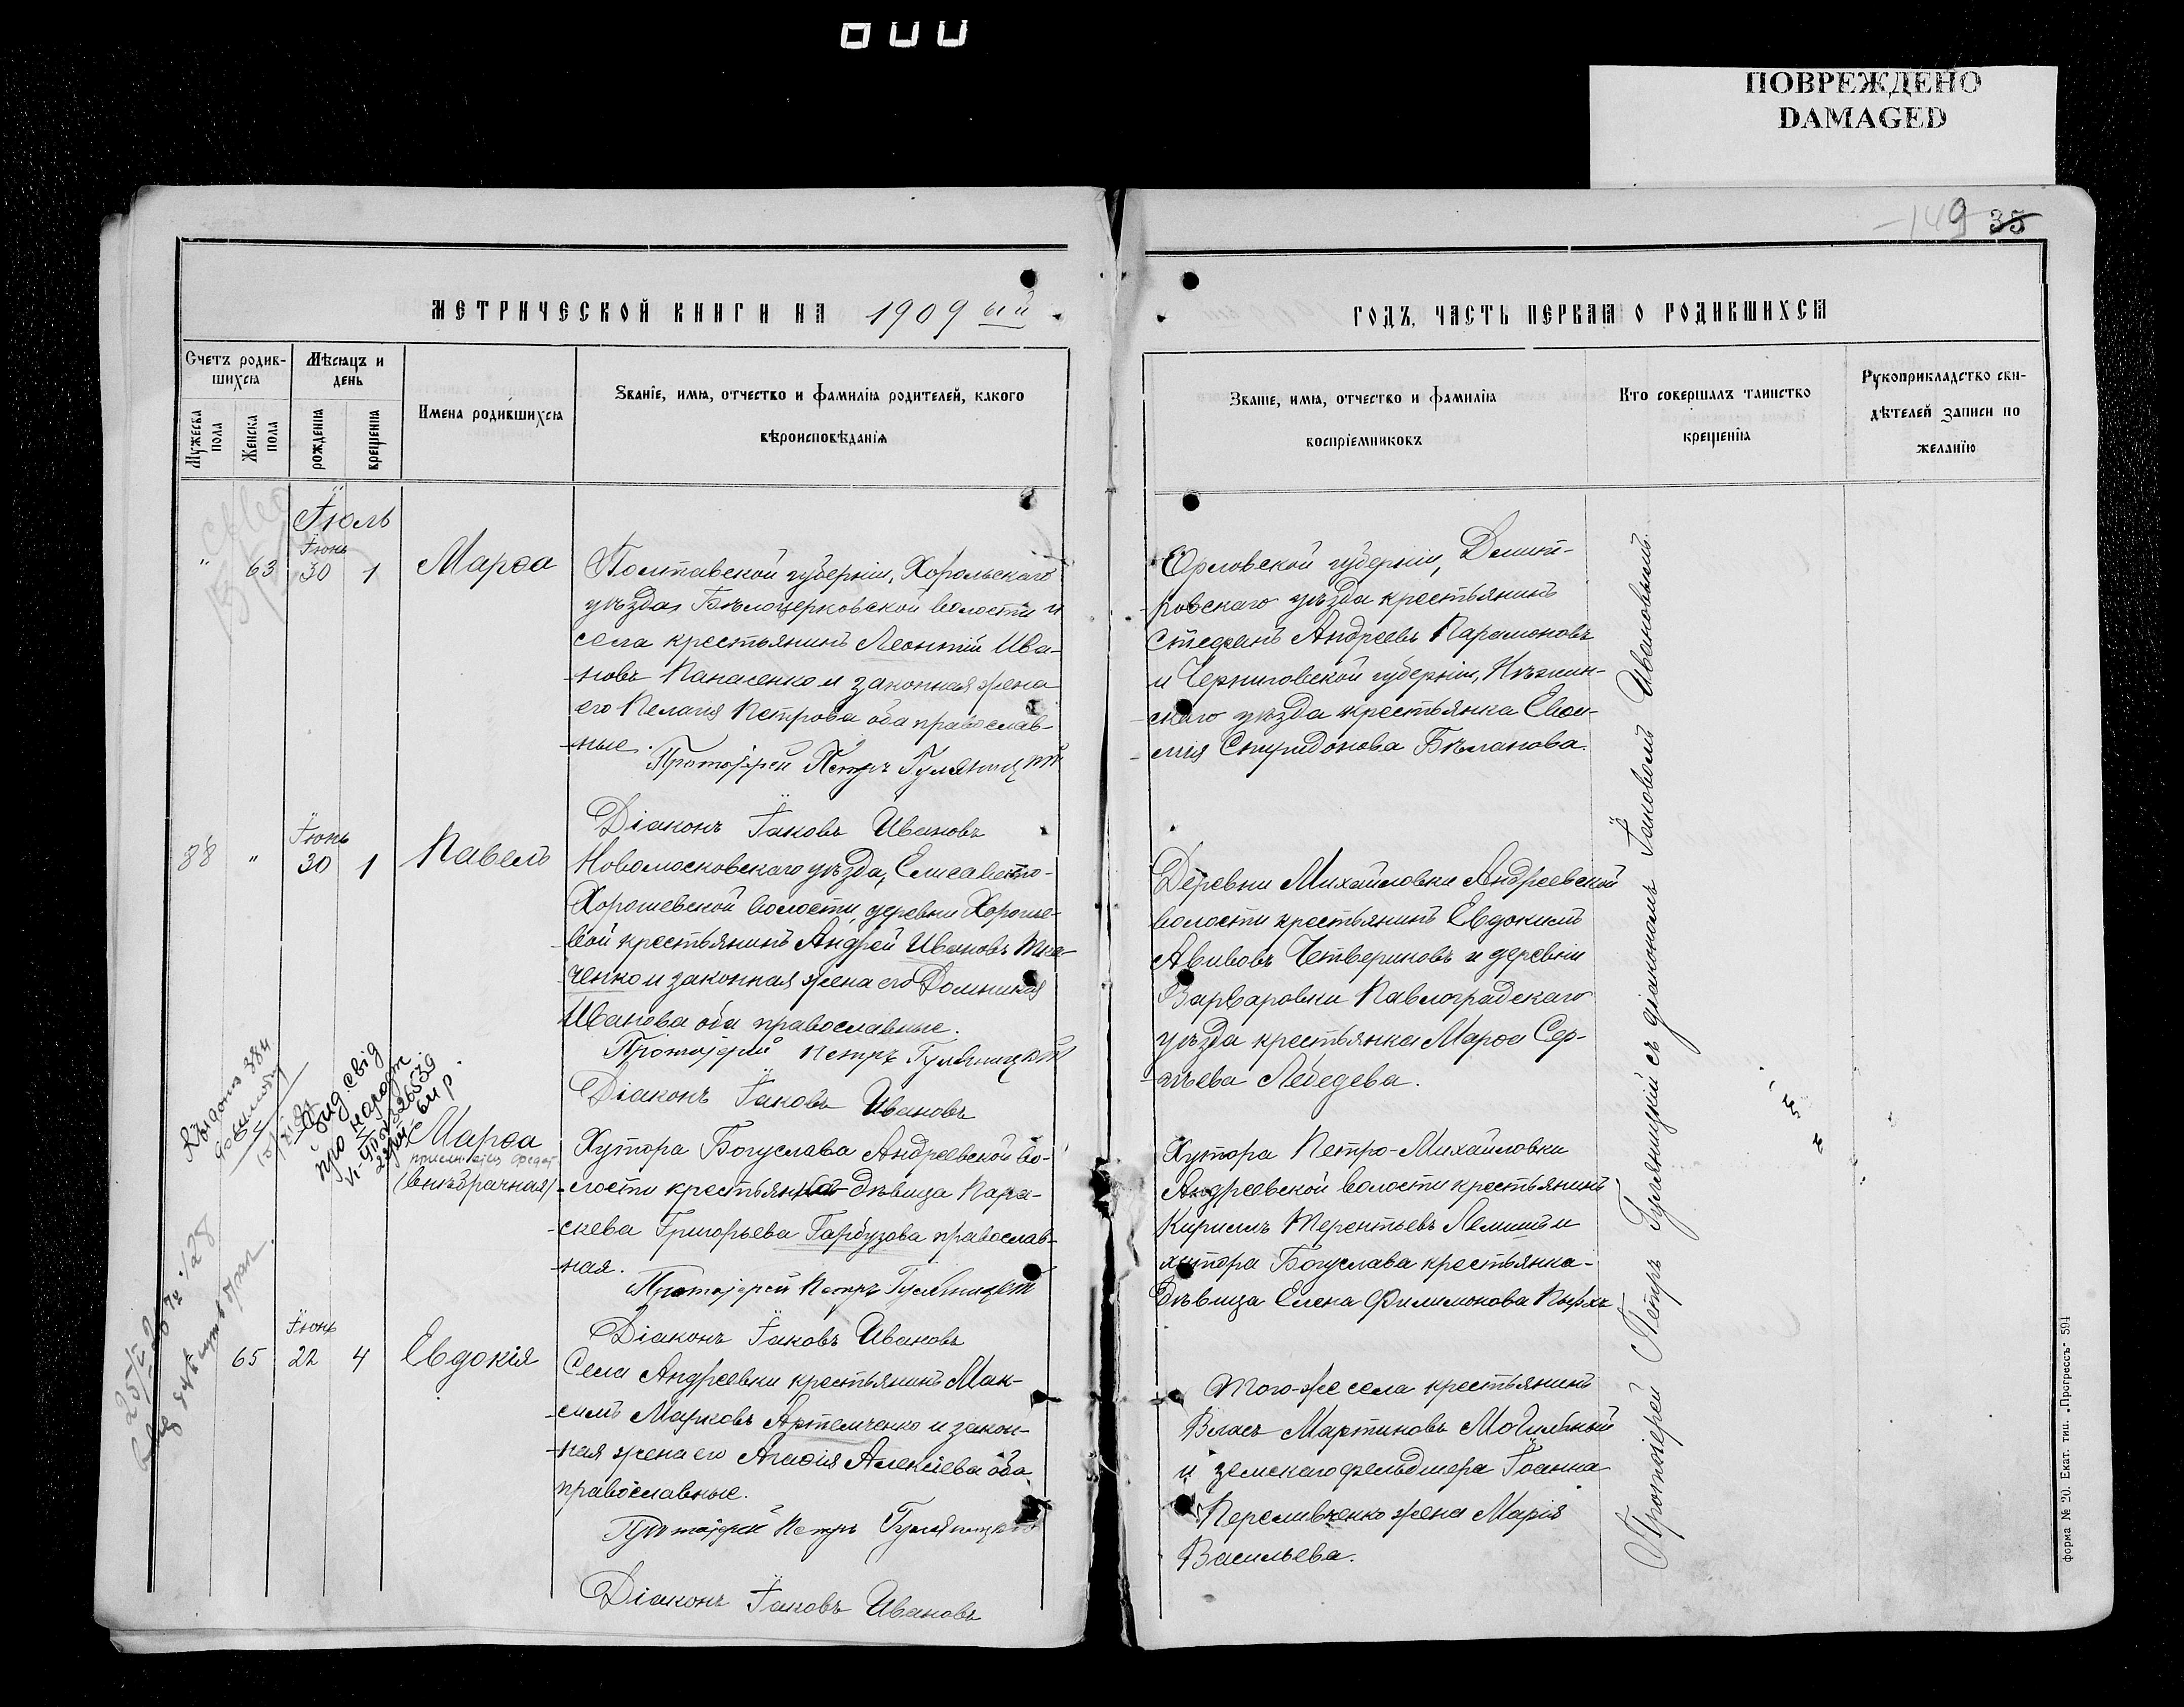 ПОВРЕЖДЕНО
DAMAGED
149 35
МЕТРИЧЕСКОЙ КНИГИ НА 1909 ый
Счетъ родившихся
Мужеска пола
Женска пола
Мѣсяцъ и день
рожденія
крещенія
Имена родившихся
Званіе, имя, отчество и фамилія родителей, какого
вѣроисповѣданія
Іюль
" 63
Іюнь
30 1
Марѳа
Полтавской губерніи, Хорольскаго
уѣзда, Бѣлоцерковской волости и
села крестьянинъ Леонтій Ива-
-новъ Панасенко и законная жена
его Пелагія Петрова оба православ-
-ные.
Протоіерей Петръ Гуляницкій
Діаконъ Іаковъ Ивановъ
88 "
Іюнь
30 1
Павелъ
Новомосковскаго уѣзда, Елисавето-
Хорошевской волости, деревни Хороше-
-вой крестьянинъ Андрей Ивановъ Тка-
-ченко и законная жена его Домникія
Иванова оба православные.
Протоіерей Петръ Гуляницкій
Діаконъ Іаковъ Ивановъ
64
Вид. свід
про народж
Марѳа
(внѣбрачная)
Хутора Богуслава Андреевской во-
-лости крестьянка-дѣвица Пара-
-скева Григорьева Гарбузова православ-
-ная.
Протоіерей Петръ Гуляницкій
Діаконъ Іаковъ Ивановъ
65
Іюнь
22 4
Евдокія
Села Андреевки крестьянинъ Мак-
-симъ Марковъ Артемченко и закон-
-ная жена его Агаѳія Алексіева оба
православные.
Протоіерей Петръ Гуляницкій
Діаконъ Іаковъ Ивановъ
ГОДЪ, ЧАСТЬ ПЕРВАЯ О РОДИВШИХСЯ
Званіе, имя, отчество и фамилія
воспріемниковъ
Кто совершалъ таинство
крещенія
Рукоприкладство сви-
дѣтелей записи по
желанію
Орловской губерніи, Дмит-
-ровскаго уѣзда крестьянинъ
Стефанъ Андреевъ Парамоновъ
и Черниговской губерніи, Нѣжин-
-скаго уѣзда крестьянка Евѳи-
-мія Спиридонова Бѣланова.
Деревни Михайловки Андреевской
волости крестьянинъ Евдокимъ
Авивовъ Четвериковъ и деревни
Варваровки Павлоградскаго
уѣзда крестьянка Марѳа Сер-
-гѣева Лебедева.
Хутора Петро-Михайловки
Андреевской волости крестьянинъ
Кириллъ Терентьевъ Лемишъ и
хутора Богуслава крестьянка-
дѣвица Елена Филимонова
Того-же села крестьянинъ
Власъ Мартиновъ Могильный
и земскаго фельдшера Іоанна
Переливченко жена Марія
Васильева.
Протоіерей Петръ Гуляницкій съ діакономъ Іаковомъ Ивановымъ.
форма № 20. Екат. тип. „Прогрессъ" 594